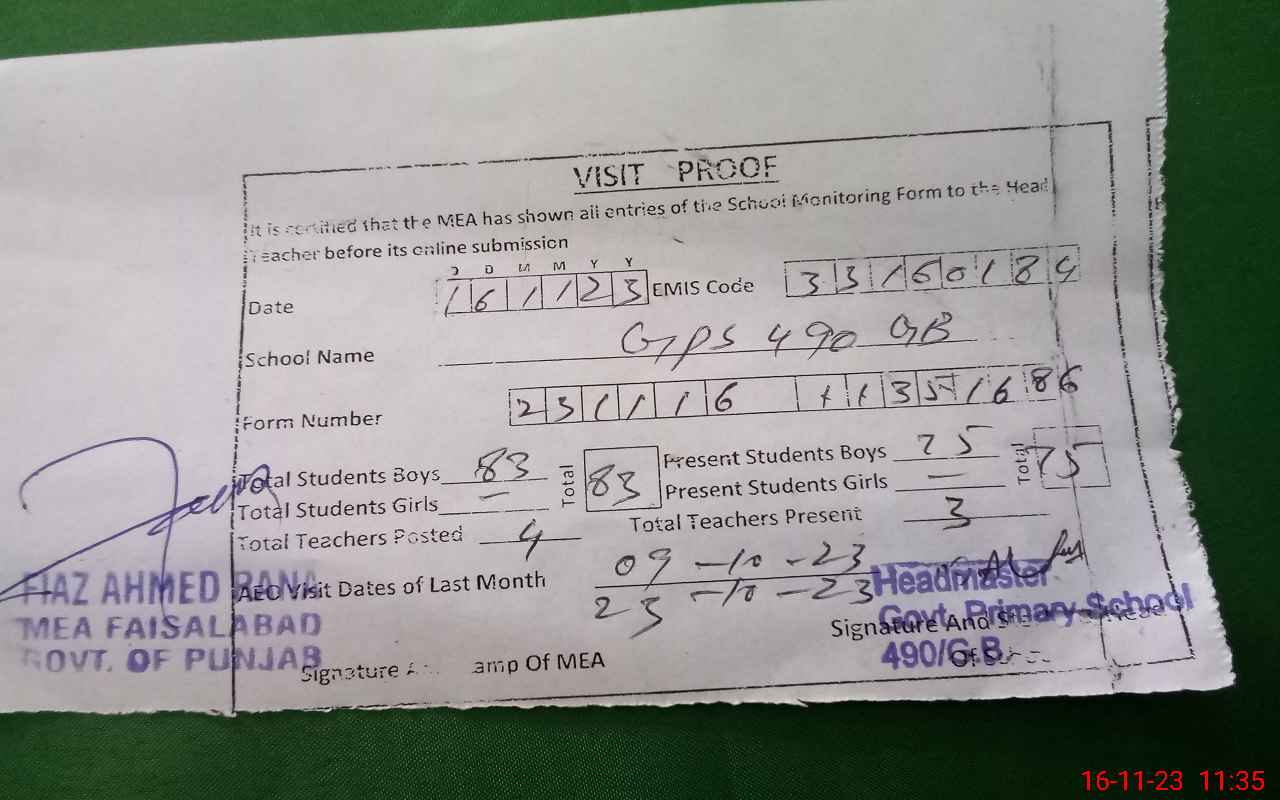 VISIT PROOF
It is certified that the MEA has shown all entries of the School Monitoring Form to the Head
Teacher before its online submission
D D M M Y Y
Date 161123 EMIS Code 33160184
School Name GPS 490 GB
Form Number 231116 11351686
Total Students Boys 83 Total 83 Present Students Boys 75 Total 75
Total Students Girls — Present Students Girls —
Total Teachers Posted 4 Total Teachers Present 3
AEO Visit Dates of Last Month 09-10-23
23-10-23
FIAZ AHMED RANA
MEA FAISALABAD
GOVT. OF PUNJAB
Signature amp Of MEA
Headmaster
Govt. Primary School
490/G.B
Signature And
Of
16-11-23 11:35